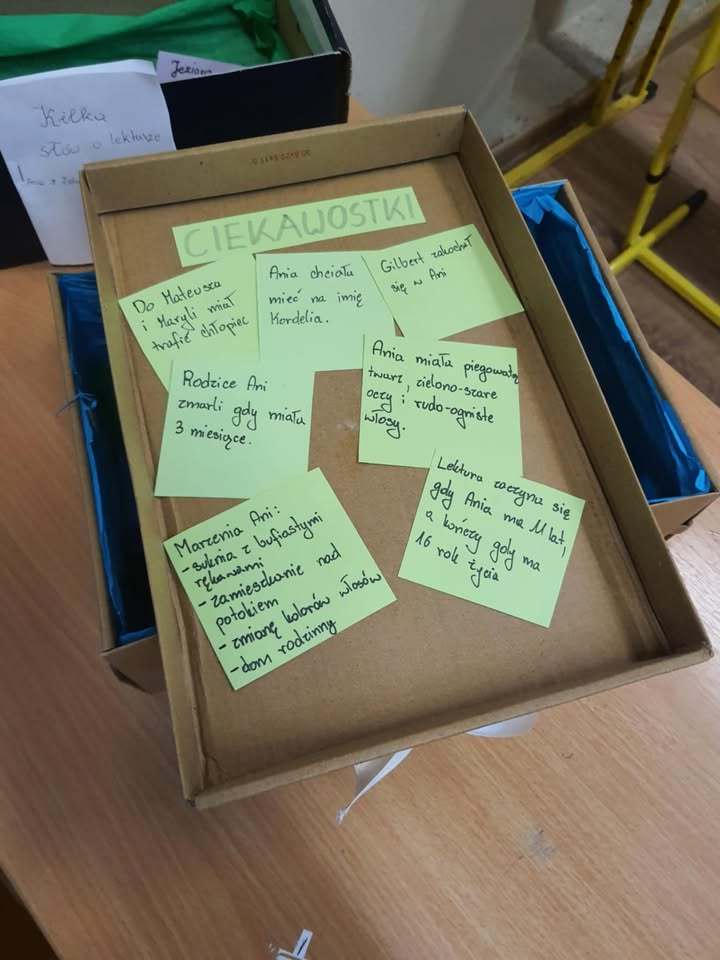 Jezioro
Kilka
słów o lekturze
CIEKAWOSTKI
Do Mateusza
i Maryli miał
trafić chłopiec
Ania chciała
mieć na imię
Kordelia.
Gilbert zakochał
się w Ani
Rodzice Ani
zmarli gdy miała
3 miesiące.
Ania miała piegowatą
twarz, zielono-szare
oczy i rudo-ogniste
włosy.
Marzenia Ani:
- suknia z bufiastymi
rękawami
- zamieszkanie nad
potokiem
- zmianę kolorów włosów
- dom rodzinny
Lektura zaczyna się
gdy Ania ma 11 lat,
a kończy gdy ma
16 rok życia